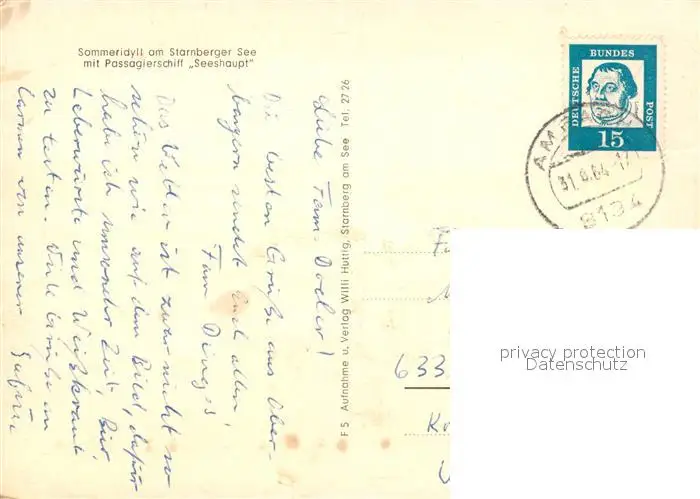 Sommeridyll am Starnberger See
mit Passagierschiff „Seeshaupt"
Liebe Fam.
Die besten Grüße aus Ober-
bayern sendet Euch allen
Fam
Das Wetter ist zwar nicht so
schön wie auf dem Bild, dafür
habe ich umsomehr Zeit, Bier,
Leberwürste und Weißkraut
zu testen. Viele Grüße an
von unserer
Sabine
FS Aufnahme u. Verlag Willi Huttig, Starnberg am See Tel. 2726
DEUTSCHE
BUNDES
POST
15
AM
31.8.64-17
8134
633
privacy protection
Datenschutz